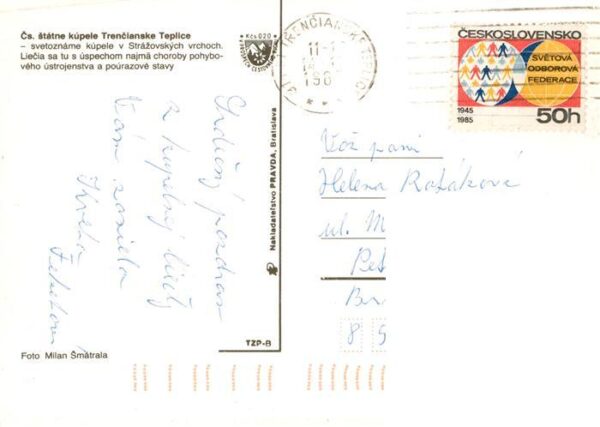 Čs. štátne kúpele Trenčianske Teplice
– svetoznáme kúpele v Strážovských vrchoch.
Liečia sa tu s úspechom najmä choroby pohybo-
vého ústrojenstva a poúrazové stavy
Kčs 0,20
TRENČIANSKE TEPLICE
11-
ČESKOSLOVENSKO
SVĚTOVÁ
ODBOROVÁ
FEDERACE
1945
1985
50h
Srdečný pozdrav
z kúpeľnej liečby
Vám zasiela
Kveta
Nakladateľstvo PRAVDA, Bratislava
Važ. pani
Helena
ul. M
8 5
TZP-B
Foto Milan Šmátrala